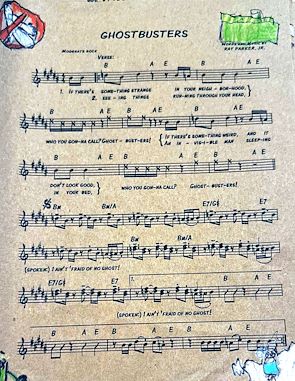 GHOSTBUSTERS
WORDS AND MUSIC BY
RAY PARKER, JR.
MODERATE ROCK
VERSE:
B A E B A E
1. IF THERE'S SOME-THING STRANGE IN YOUR NEIGH - BOR-HOOD,
2. SEE - ING THINGS RUN-NING THROUGH YOUR HEAD,
B A E B A E
WHO YOU GON-NA CALL? GHOST - BUST-ERS! IF THERE'S SOME-THING WEIRD, AND IT
AN IN - VIS-I-BLE MAN SLEEP-ING
B A E B A E
DON'T LOOK GOOD, WHO YOU GON-NA CALL? GHOST - BUST-ERS!
IN YOUR BED,
B Bm/A E7/G# E7
Bm Bm/A
(SPOKEN:) I AIN'T 'FRAID OF NO GHOST!
E7/G# E7 1. B A E
(SPOKEN:) I AIN'T 'FRAID OF NO GHOST!
B A E B A E B A E